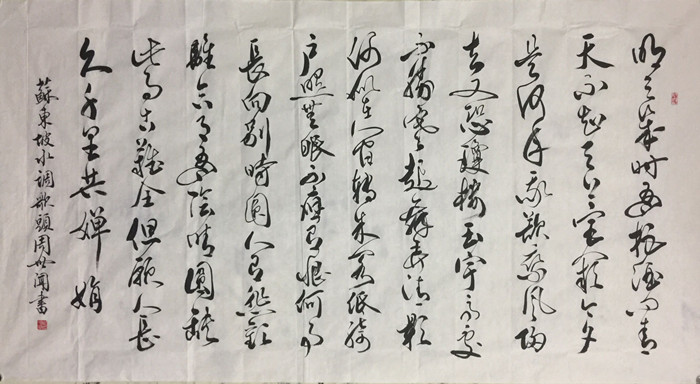 明月幾時有把酒問青
天不知天上宮闕今夕
是何年我欲乘風歸
去又恐瓊樓玉宇高處
不勝寒起舞弄清影
何似在人間轉朱閣低綺
户照無眠不應有恨何事
長向别時圓人有悲歡
離合月有陰晴圓缺
此事古難全但願人長
久千里共嬋娟
蘇東坡水调歌頭周世聞書